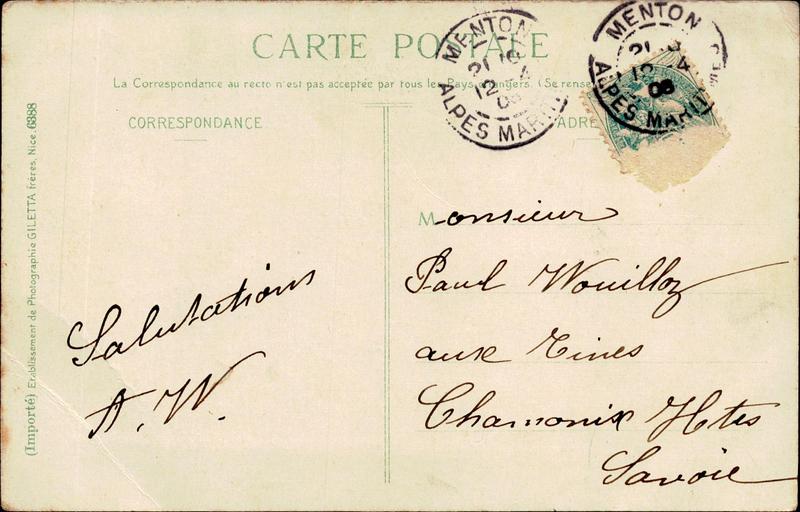 CARTE POSTALE
La Correspondance au recto n'est pas acceptée par tous les Pays étrangers. (Se rense
CORRESPONDANCE
ADRE
MENTON
21 10
12 4
08
ALPES MARIT
MENTON
21
12 4
08
ALPES MARIT
Monsieur
Paul Wouilloz
aux Tines
Chamonix Htes
Savoie
Salutations
A. W.
(Importé) Etablissement de Photographie GILETTA frères, Nice. 6388